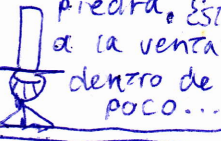 piedra. Est
a la venta
dentro de
poco...